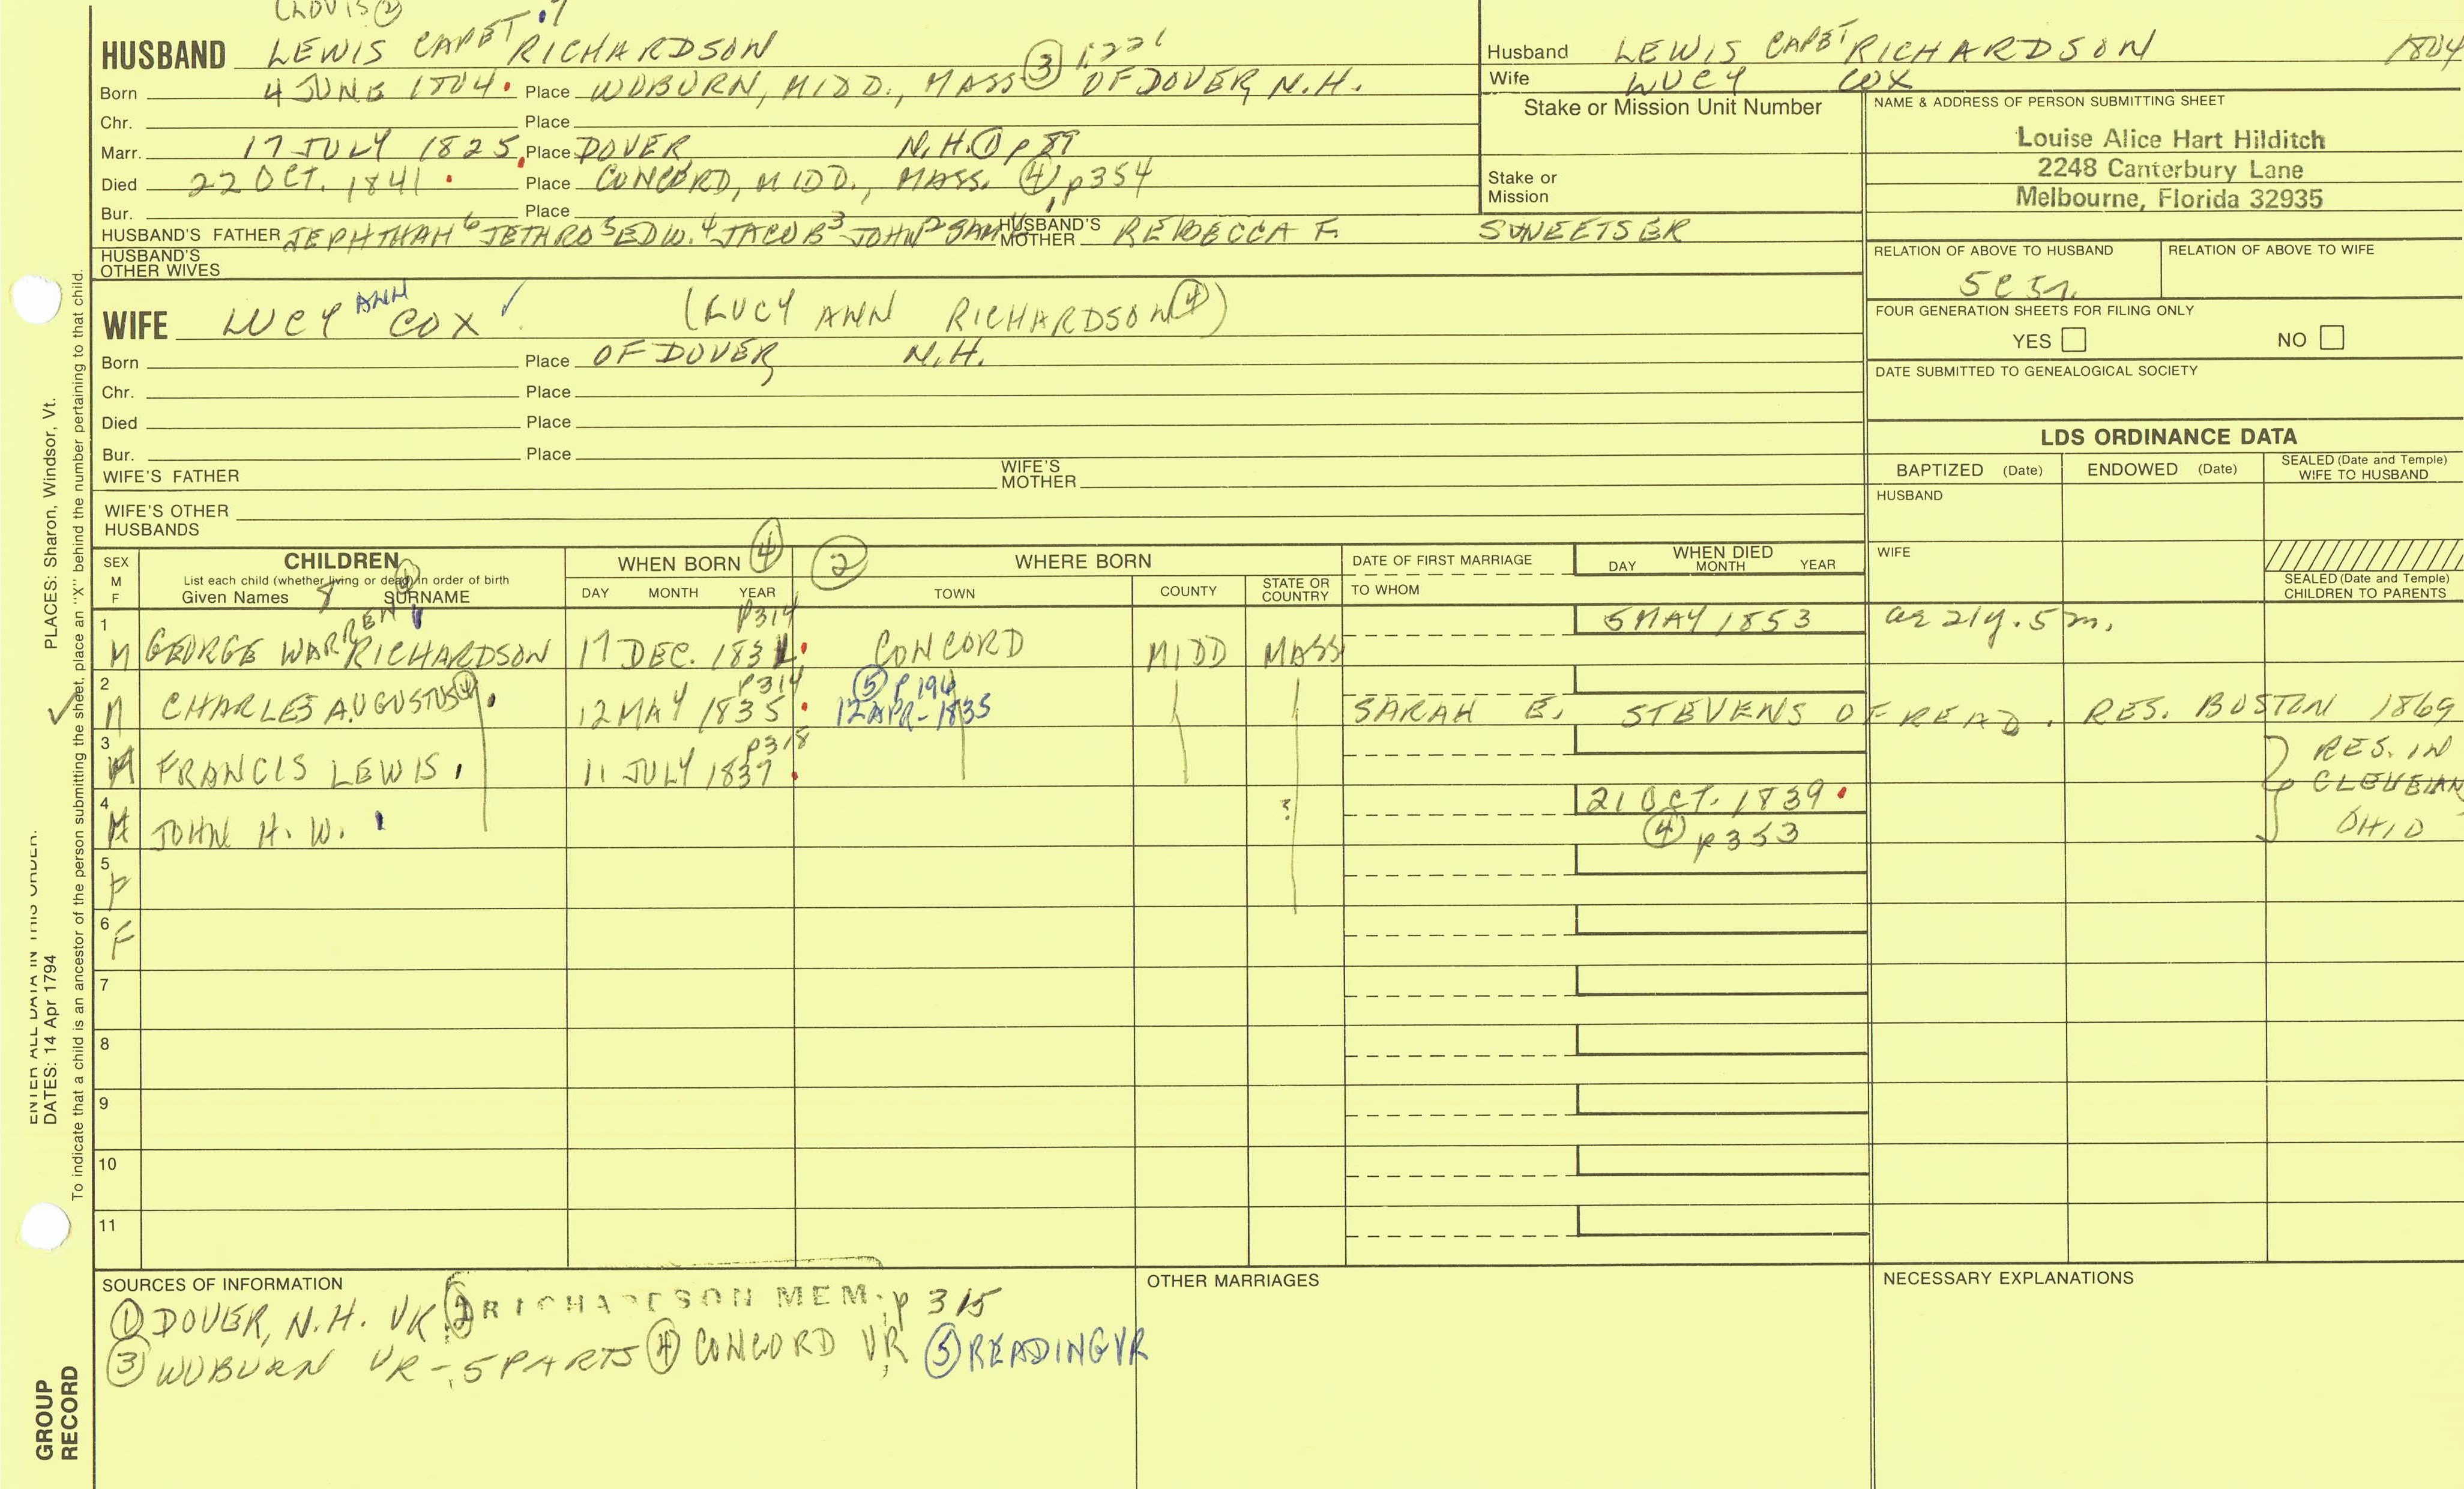 CLOVIS ②
HUSBAND LEWIS CAPET RICHARDSON
Born 4 JUNE 1804. Place WOBURN, MIDD., MASS ③ OF DOVER, N.H.
Chr. Place
Marr. 17 JULY 1825 Place DOVER N.H. ① p 89
Died 22 OCT. 1841 Place CONCORD, MIDD., MASS. ④ p354
Bur. Place
HUSBAND'S FATHER JEPHTHAH 6 JETHRO 5 EDW. 4 JACOB 3 JOHN 2 SAM HUSBAND'S MOTHER REBECCA F. SWEETSER
HUSBAND'S OTHER WIVES
Husband LEWIS CAPET RICHARDSON 1804
Wife LUCY COX
Stake or Mission Unit Number
Stake or Mission
NAME & ADDRESS OF PERSON SUBMITTING SHEET
Louise Alice Hart Hilditch
2248 Canterbury Lane
Melbourne, Florida 32935
RELATION OF ABOVE TO HUSBAND RELATION OF ABOVE TO WIFE
FOUR GENERATION SHEETS FOR FILING ONLY
YES NO
DATE SUBMITTED TO GENEALOGICAL SOCIETY
WIFE LUCY ANN COX ✓ (LUCY ANN RICHARDSON ④)
Born Place OF DOVER, N.H.
Chr. Place
Died Place
Bur. Place
WIFE'S FATHER WIFE'S MOTHER
WIFE'S OTHER HUSBANDS
LDS ORDINANCE DATA
BAPTIZED (Date) ENDOWED (Date) SEALED (Date and Temple) WIFE TO HUSBAND
HUSBAND
WIFE
SEALED (Date and Temple) CHILDREN TO PARENTS
SEX M F CHILDREN WHEN BORN ④ ② WHERE BORN DATE OF FIRST MARRIAGE WHEN DIED
List each child (whether living or dead) in order of birth
Given Names SURNAME DAY MONTH YEAR TOWN COUNTY STATE OR COUNTRY TO WHOM DAY MONTH YEAR
1 M GEORGE WARREN RICHARDSON 17 DEC. 1831 p314 CONCORD MIDD MASS 5 MAY 1853 ae 21y. 5m.
2 M CHARLES AUGUSTUS ④ 12 MAY 1835 p314 ⑤ p194 12 APR - 1835 SARAH E. STEVENS OF READ. RES. BOSTON 1869
3 M FRANCIS LEWIS 11 JULY 1837 p318
4 M JOHN H. W. ? 21 OCT. 1839 ④ p353
RES. IN
OHIO
5 F
6 F
7
8
9
10
11
SOURCES OF INFORMATION
① DOVER, N.H. VR ② RICHARDSON MEM. p 315
③ WOBURN VR - 5 PARTS ④ CONCORD VR ⑤ READING VR
OTHER MARRIAGES
NECESSARY EXPLANATIONS
PLACES: Sharon, Windsor, Vt.
ENTER ALL DATA IN THIS ORDER:
DATES: 14 Apr 1794
To indicate that a child is an ancestor of the person submitting the sheet, place an "X" behind the number pertaining to that child.
GROUP RECORD